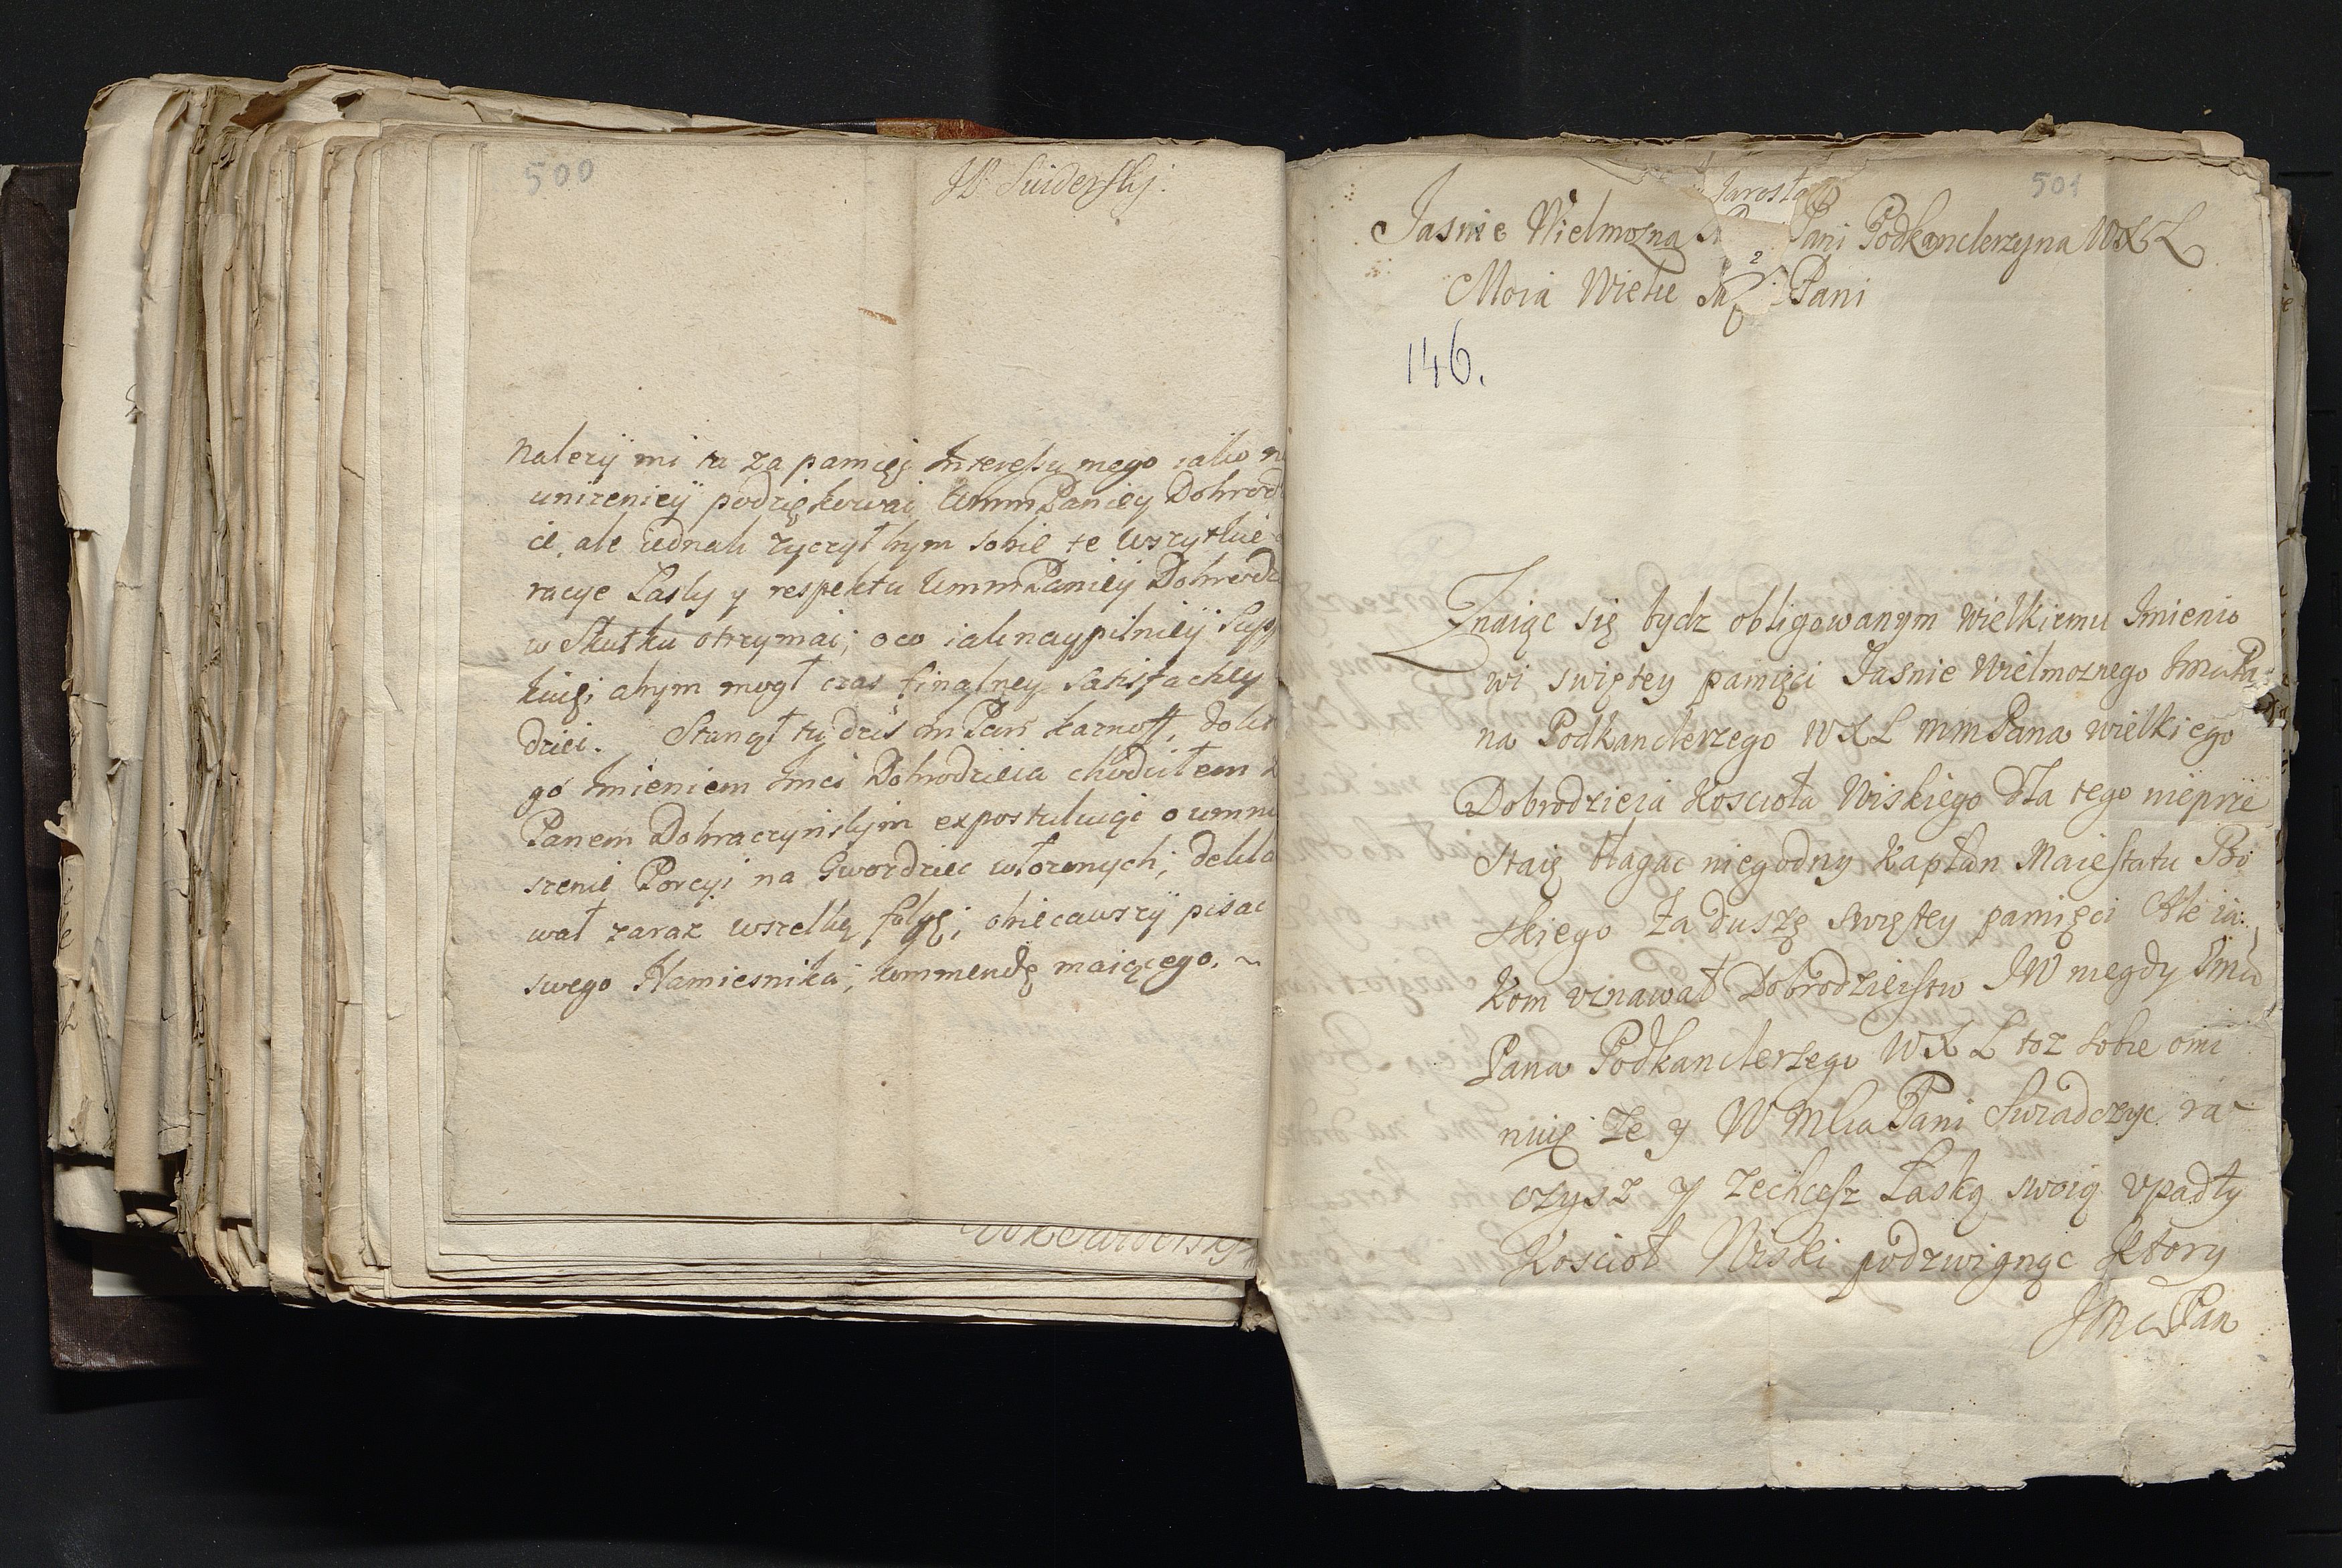 500
JP Suiderskj.
Nalezÿ mi tu za pamięć Interessu mego iako n
unizenieÿ podziękować WmmPanieÿ Dobrod
ci, ale iednak zyczył bym sobie te wszytkie
racye Łasky y respektu WmmPanieÿ Dobrodz
w Skutku otrzymać; o co iak naypilnieÿ Supp
kuięi abym mogł czas finalney Satisfackcÿ
dziei. Stanął tu dziś Im Pan Karnoff, do kt
go Imieniem Imci Dobrodzieia chodziłem z
Panem Dobraczyńskim expostuluiąc o umni
szenie Porcyi na Gwozdziec włozonych; dekla
wał zaraz wszelką folgę; obiecawszÿ pisac
swego Namiesnika; kommendę maiącego. ~
501
Jarosła
Jasnie Wielmozna Pani Podkanclerzyna WXL
Moia Wielce Pani
2
146.
Znaiąc się bydz obligowanym wielkiemu Imienio
wi swiętey pamięci Jasnie Wielmoznego ImciPa
na Podkanclerzego WXL mmPana wielkiego
Dobrodzieia Koscioła Niskiego Dla tego nieprze
Staię błagac niegodny Kapłan Maiestatu Bo
skiego Za duszę swiętey pamięci Ale ia
kom vznawał Dobrodzieistw JW niegdy Imci
Pana Podkanclerzego WXL toz sobie omi
nuię Ze y WMCia Pani Swiadczyc ra
czysz y zechcesz Łaską swoią vpadły
Koscioł Niski podzwignąc Ktory
JMcPan